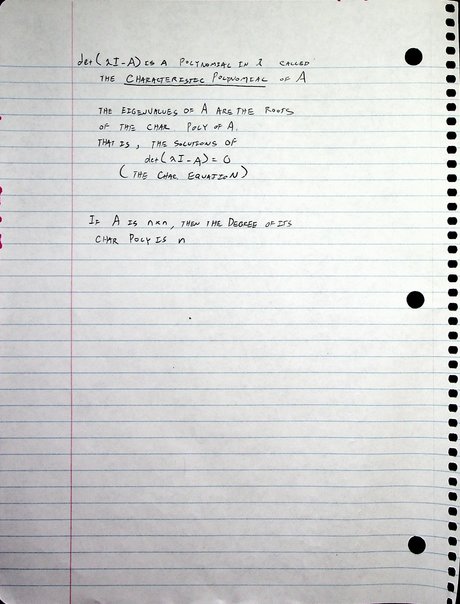 det(λI-A) IS A POLYNOMIAL IN λ CALLED
THE CHARACTERISTIC POLYNOMIAL OF A
THE EIGENVALUES OF A ARE THE ROOTS
OF THE CHAR POLY OF A.
THAT IS, THE SOLUTIONS OF
det(λI-A)=0
(THE CHAR EQUATION)
IF A IS n×n, THEN THE DEGREE OF ITS
CHAR POLY IS n